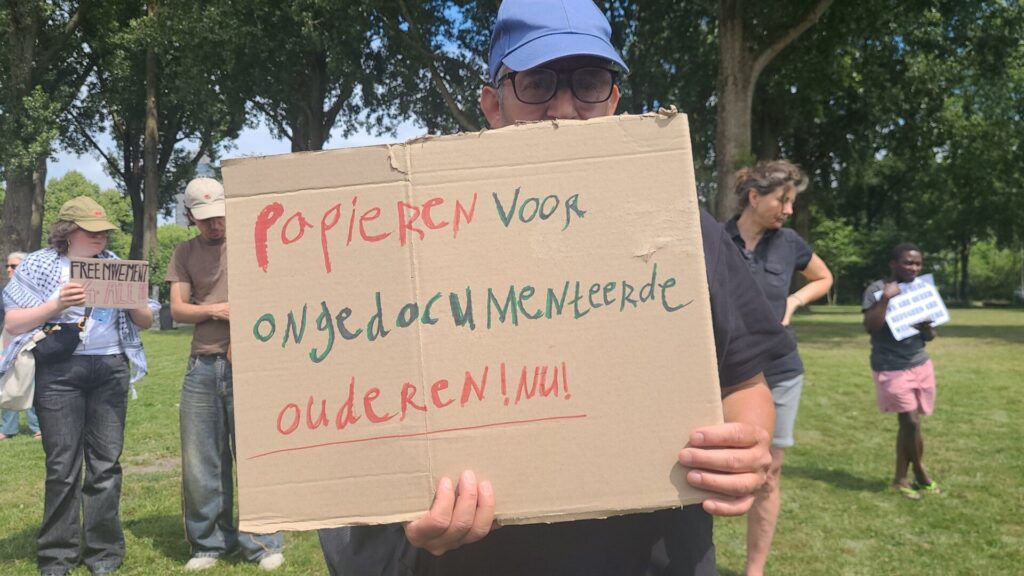 PAPIEREN VOOR
ONGEDOCUMENTEERDE
OUDEREN!NU!
FREE MOVEMENT
4 ALL!